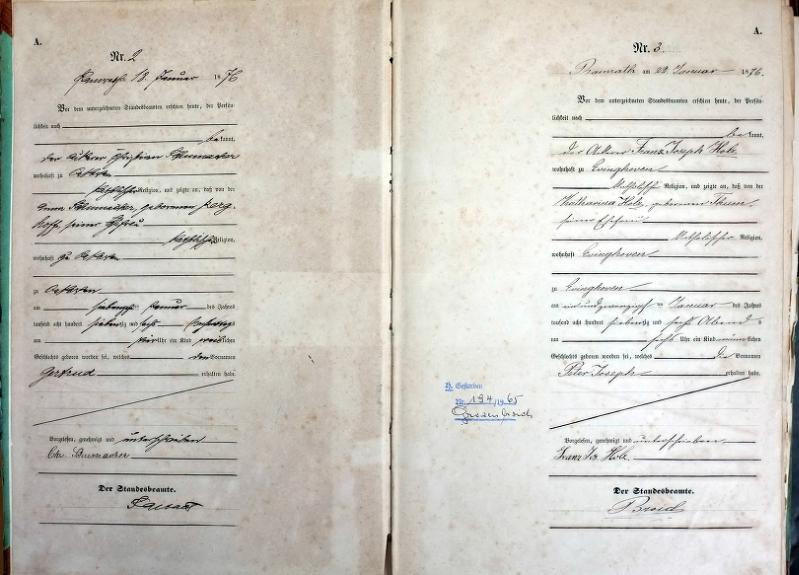 A.
Nr. 2
18. Januar 1876
Vor dem unterzeichneten Standesbeamten erschien heute, der Persön-
lichkeit nach
bekannt,
der Ackerer Christian Schumacher
wohnhaft zu
katholischer Religion, und zeigte an, daß von der
Anna Schumacher, geborenen Berg-
hoff, seiner Ehefrau
katholischer Religion,
wohnhaft zu
zu
am siebenzehnten Januar des Jahres
tausend acht hundert siebenzig und sechs Nachmittags
um vier Uhr ein Kind weiblichen
Geschlechts geboren worden sei, welches den Vornamen
Gertrud erhalten habe.
Vorgelesen, genehmigt und unterschrieben
Chr. Schumacher
Der Standesbeamte.
A.
Nr. 3.
Ramrath am 22 Januar 1876.
Vor dem unterzeichneten Standesbeamten erschien heute, der Persön-
lichkeit nach
bekannt,
der Ackerer Franz Joseph Holz
wohnhaft zu Evinghoven
katholischer Religion, und zeigte an, daß von der
Katharina Holz, geborenen Thum
seiner Ehefrau
katholischer Religion,
wohnhaft Evinghoven
zu Evinghoven
am ein und zwanzigsten Januar des Jahres
tausend acht hundert siebenzig und sechs Abends
um sechs Uhr ein Kind männlichen
Geschlechts geboren worden sei, welches die Vornamen
Peter Joseph erhalten habe.
H. Gestorben
Nr. 194/1965
Grevenbroich
Vorgelesen, genehmigt und unterschrieben
Franz Jos Holz
Der Standesbeamte.
Broid